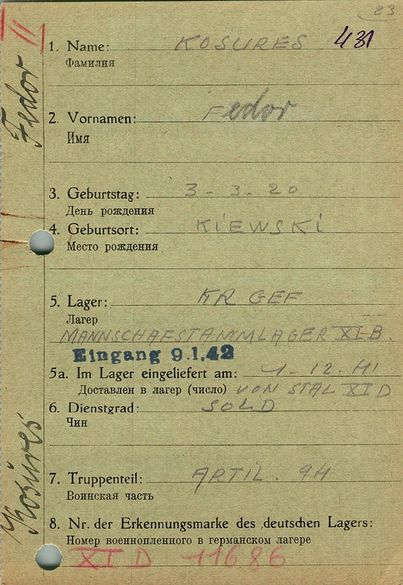 83
1. Name: KOSURES 431
Фамилия
2. Vornamen: Fedor
Имя
3. Geburtstag: 3-3.20
День рождения
4. Geburtsort: KIEWSKI
Место рождения
5. Lager: KR GEF
Лагер
MANNSCHAFSTAMMLAGER XI B.
Eingang 9.1.42
5a. Im Lager eingeliefert am: 1-12.41
Доставлен в лагер (число) VON STAL XI D
6. Dienstgrad: SOLD
Чин
7. Truppenteil: ARTIL. 94
Воинская часть
8. Nr. der Erkennungsmarke des deutschen Lagers:
Номер военнопленного в германском лагере
XI D 11686
Kosures
Fedor
II